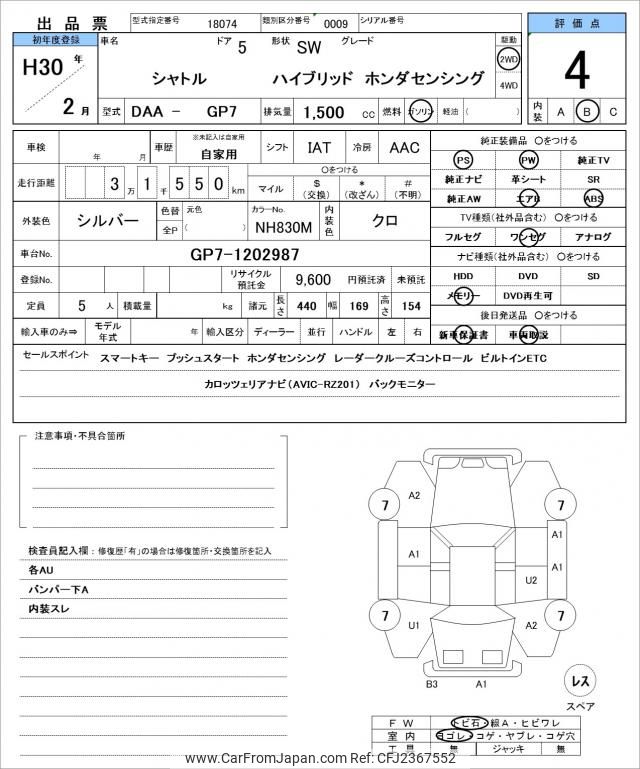 出品票 型式指定番号 18074 類別区分番号 0009 シリアル番号
評価点
4
内装 A B C
初年度登録
H30 年
2 月
車名 ドア 5 形状 SW グレード
シャトル ハイブリッド ホンダセンシング
駆動
2WD
4WD
型式 DAA - GP7 排気量 1,500 cc 燃料 ガソリン 軽油 ( )
車検 年 月 車歴 ※未記入は自家用 自家用 シフト IAT 冷房 AAC
走行距離 3 万 1 千 5 5 0 km
〇をつける
マイル $ (交換) * (改ざん) # (不明)
外装色 シルバー 色替 全P 元色 ( ) カラーNo. NH830M 内装色 クロ
車台No. GP7-1202987
登録No. リサイクル預託金 9,600 円預託済 未預託
定員 5 人 積載量 kg 諸元 長さ 440 幅 169 高さ 154
輸入車のみ⇒ モデル年式 年 輸入区分 ディーラー 並行 ハンドル 左 右
純正装備品 〇をつける
PS PW 純正TV
純正ナビ 革シート SR
純正AW エアB ABS
TV種類(社外品含む) 〇をつける
フルセグ ワンセグ アナログ
ナビ種類(社外品含む) 〇をつける
HDD DVD SD
メモリー DVD再生可
後日発送品 〇をつける
新車保証書 車両取説
セールスポイント スマートキー プッシュスタート ホンダセンシング レーダークルーズコントロール ビルトインETC
カロッツェリアナビ(AVIC-RZ201) バックモニター
注意事項・不具合箇所
検査員記入欄:修復歴「有」の場合は修復箇所・交換箇所を記入
各AU
バンパー下A
内装スレ
A2
7 7
A1
A1
A1
U2
7 7
U1 A2
B3 A1
レス
スペア
FW トビ石・線A・ヒビワレ
室内 ヨゴレ・コゲ・ヤブレ・コゲ穴
工具 無 ジャッキ 無
www.CarFromJapan.com Ref: CFJ2367552